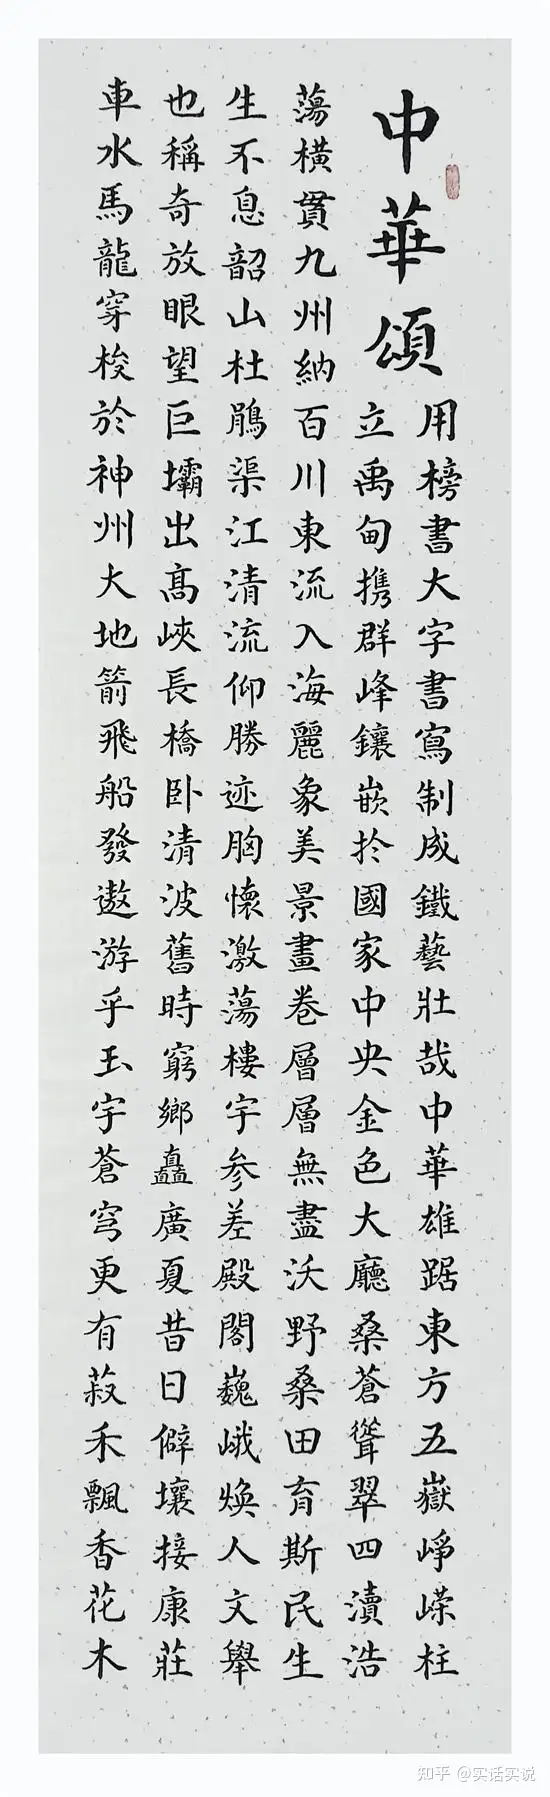 中華頌
用榜書大字書寫制成鐵藝壯哉中華雄踞東方五嶽崢嶸柱
立禹甸携群峰鑲嵌於國家中央金色大廳桑蒼聳翠四瀆浩
蕩橫貫九州納百川東流入海麗象美景畫卷層層無盡沃野桑田育斯民生
生不息韶山杜鵑渠江清流仰勝迹胸懷激蕩樓宇参差殿閣巍峨焕人文舉
也稱奇放眼望巨壩出高峽長橋卧清波舊時窮鄉矗廣夏昔日僻壤接康莊
車水馬龍穿梭於神州大地箭飛船發遨游乎玉宇蒼穹更有菽禾飄香花木
知乎 @实话实说